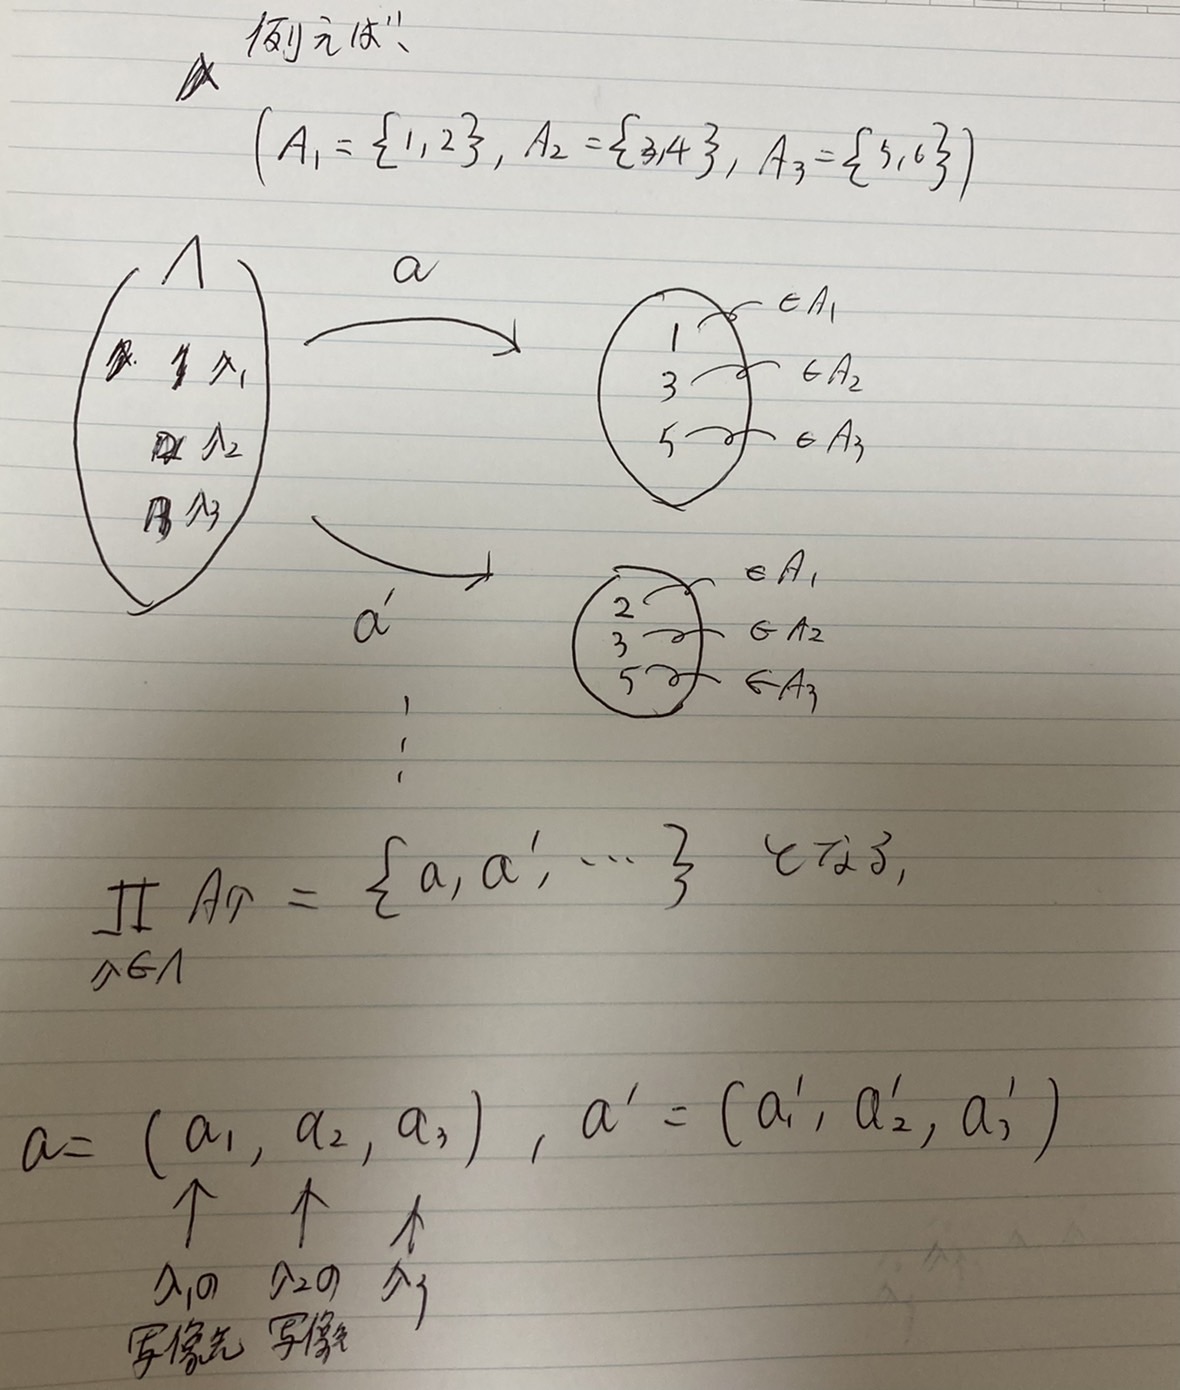 例えば、
(A₁ = {1,2}, A₂ = {3,4}, A₃ = {5,6})
Λ
a
λ₁
λ₂
λ₃
1 ∈A₁
3 ∈A₂
5 ∈A₃
a′
2 ∈A₁
3 ∈A₂
5 ∈A₃
∏ Aλ = {a, a′, …} となる,
λ∈Λ
a = (a₁, a₂, a₃), a′ = (a₁′, a₂′, a₃′)
↑ ↑ ↑
λ₁の λ₂の λ₃
写像先 写像先